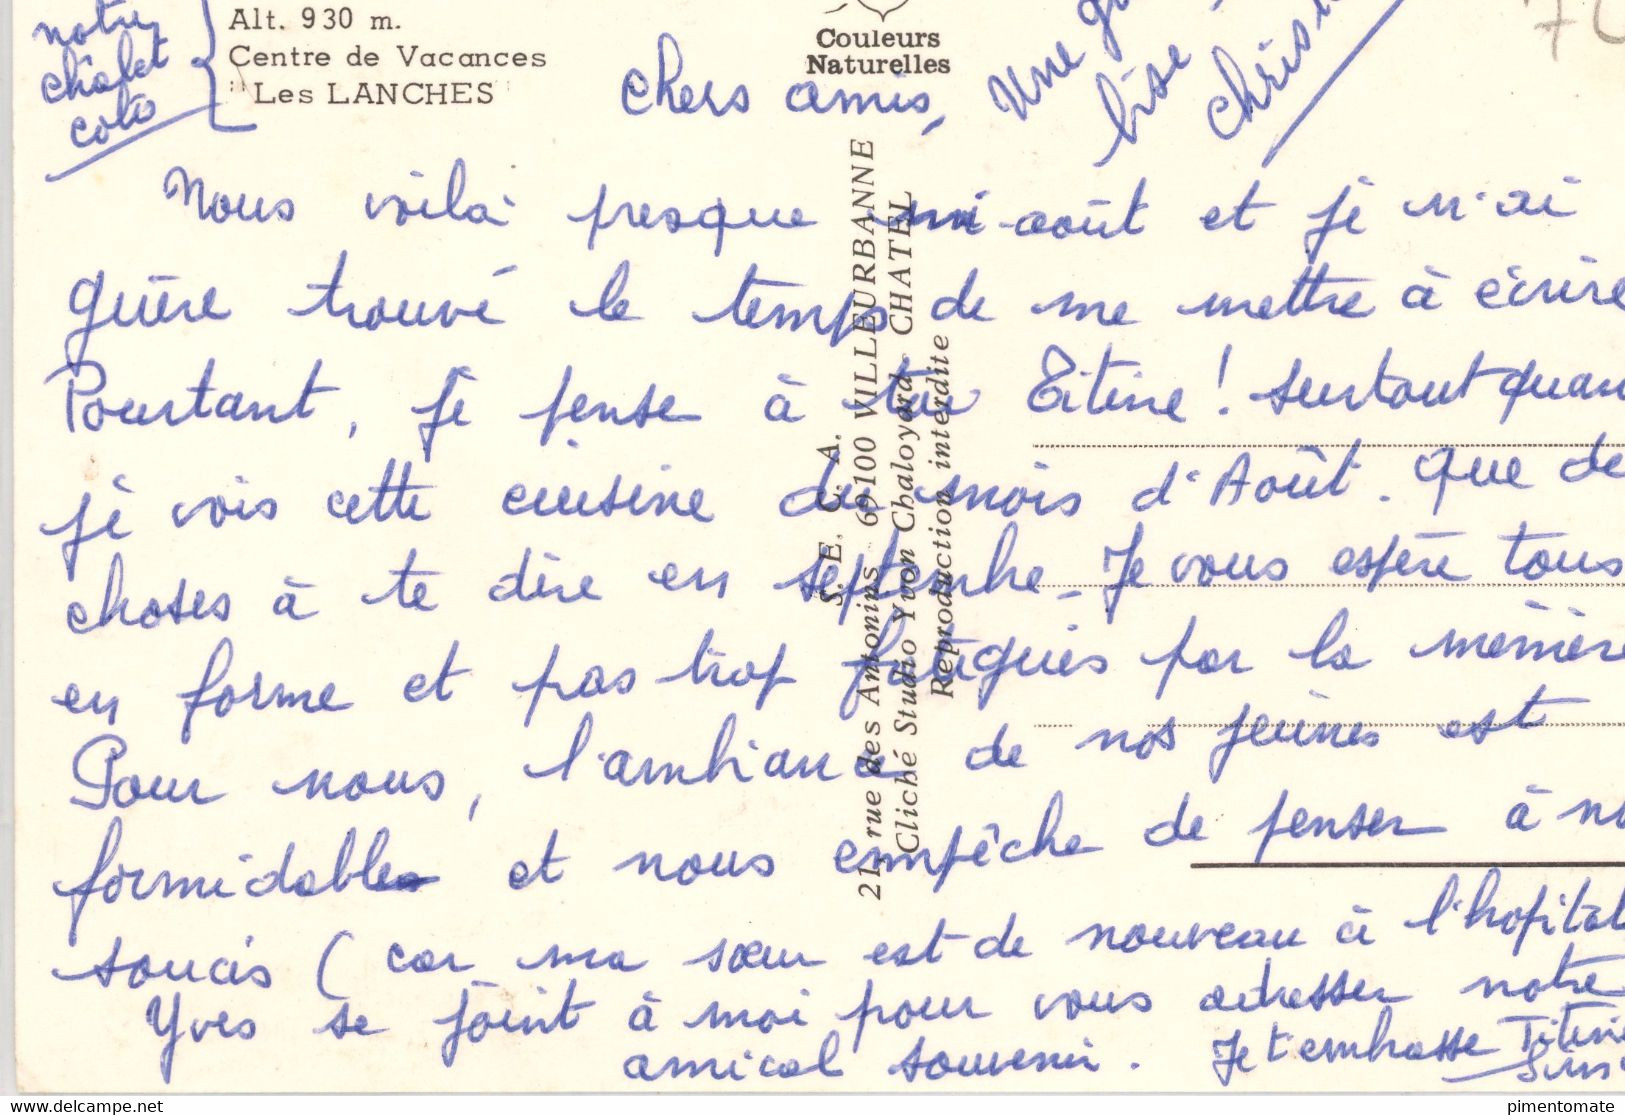 notre
châlet
colo
Alt. 930 m.
Centre de Vacances
"Les LANCHES"
Couleurs
Naturelles
Une
bise
Chers amis,
Nous voilà presque mi-août et je n'ai
guère trouvé le temps de me mettre à écrire
Pourtant, je pense à toi Titine! surtout quan
je vois cette cuisine du mois d'Août. Que de
choses à te dire en septembre. Je vous espère tous
en forme et pas trop fatigués par la mémère
Pour nous, l'ambiance de nos jeunes est
formidable et nous empêche de penser à no
soucis (car ma sœur est de nouveau à l'hopital
Yves se joint à moi pour vous adresser notre
amical souvenir. Je t'embrasse Titine
S. E. C. A.
21, rue des Antonins 69100 VILLEURBANNE
Cliché Studio Yvon Chaloyard CHATEL
Reproduction interdite
www.delcampe.net
pimentomate